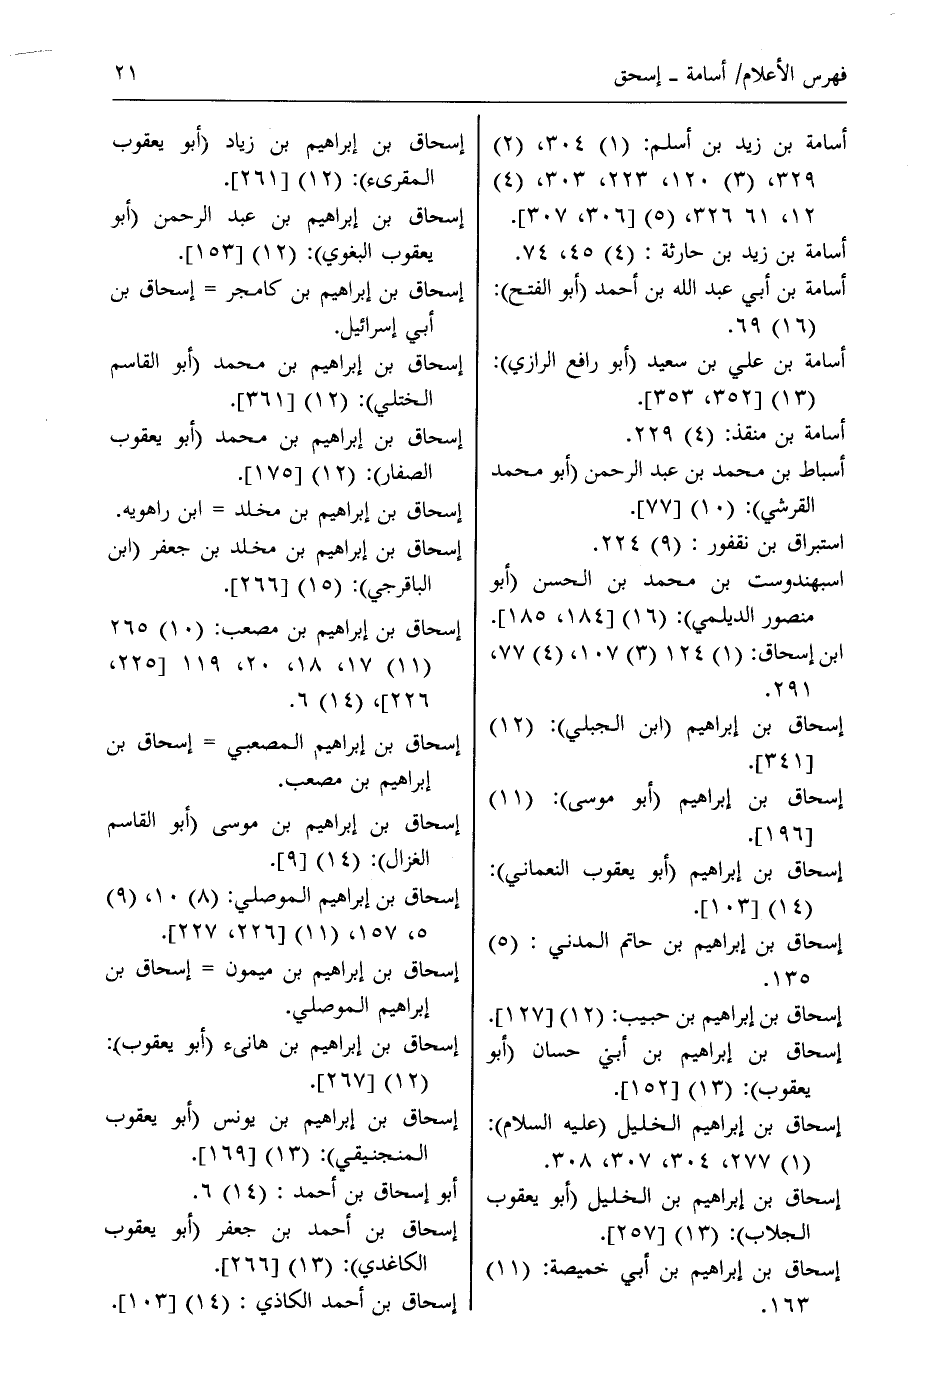 فهرس الأعلام/ أسامة ـ إسحق
٢١
أسامة بن زيد بن أسلم: (١) ٣٠٤، (٢)
٣٢٩، (٣) ١٢٠، ٢٢٣، ٣٠٣، (٤)
١٢، ٦١ ٣٢٦، (٥) [٣٠٦، ٣٠٧].
أسامة بن زيد بن حارثة : (٤) ٤٥، ٧٤.
أسامة بن أبي عبد الله بن أحمد (أبو الفتح):
(١٦) ٦٩.
أسامة بن علي بن سعيد (أبو رافع الرازي):
(١٣) [٣٥٢، ٣٥٣].
أسامة بن منقذ: (٤) ٢٢٩.
أسباط بن محمد بن عبد الرحمن (أبو محمد
القرشي): (١٠) [٧٧].
استبراق بن نقفور : (٩) ٢٢٤.
اسبهندوست بن محمد بن الحسن (أبو
منصور الديلمي): (١٦) [١٨٤، ١٨٥].
ابن إسحاق: (١) ١٢٤ (٣) ١٠٧، (٤) ٧٧،
٢٩١.
إسحاق بن إبراهيم (ابن الجبلي): (١٢)
[٣٤١].
إسحاق بن إبراهيم (أبو موسى): (١١)
[١٩٦].
إسحاق بن إبراهيم (أبو يعقوب النعماني):
(١٤) [١٠٣].
إسحاق بن إبراهيم بن حاتم المدني : (٥)
١٣٥.
إسحاق بن إبراهيم بن حبيب: (١٢) [١٢٧].
إسحاق بن إبراهيم بن أبي حسان (أبو
يعقوب): (١٣) [١٥٢].
إسحاق بن إبراهيم الخليل (عليه السلام):
(١) ٢٧٧، ٣٠٤، ٣٠٧، ٣٠٨.
إسحاق بن إبراهيم بن الخليل (أبو يعقوب
الجلاب): (١٣) [٢٥٧].
إسحاق بن إبراهيم بن أبي خميصة: (١١)
١٦٣.
إسحاق بن إبراهيم بن زياد (أبو يعقوب
المقرىء): (١٢) [٢٦١].
إسحاق بن إبراهيم بن عبد الرحمن (أبو
يعقوب البغوي): (١٢) [١٥٣].
إسحاق بن إبراهيم بن كامجر = إسحاق بن
أبي إسرائيل.
إسحاق بن إبراهيم بن محمد (أبو القاسم
الختلي): (١٢) [٣٦١].
إسحاق بن إبراهيم بن محمد (أبو يعقوب
الصفار): (١٢) [١٧٥].
إسحاق بن إبراهيم بن مخلد = ابن راهويه.
إسحاق بن إبراهيم بن مخلد بن جعفر (ابن
الباقرجي): (١٥) [٢٦٦].
إسحاق بن إبراهيم بن مصعب: (١٠) ٢٦٥
(١١) ١٧، ١٨، ٢٠، ١١٩ [٢٢٥،
٢٢٦]، (١٤) ٦.
إسحاق بن إبراهيم المصعبي = إسحاق بن
إبراهيم بن مصعب.
إسحاق بن إبراهيم بن موسى (أبو القاسم
الغزال): (١٤) [٩].
إسحاق بن إبراهيم الموصلي: (٨) ١٠، (٩)
٥، ١٥٧، (١١) [٢٢٦، ٢٢٧].
إسحاق بن إبراهيم بن ميمون = إسحاق بن
إبراهيم الموصلي.
إسحاق بن إبراهيم بن هانىء (أبو يعقوب):
(١٢) [٢٦٧].
إسحاق بن إبراهيم بن يونس (أبو يعقوب
المنجنيقي): (١٣) [١٦٩].
أبو إسحاق بن أحمد : (١٤) ٦.
إسحاق بن أحمد بن جعفر (أبو يعقوب
الكاغدي): (١٣) [٢٦٦].
إسحاق بن أحمد الكاذي : (١٤) [١٠٣].